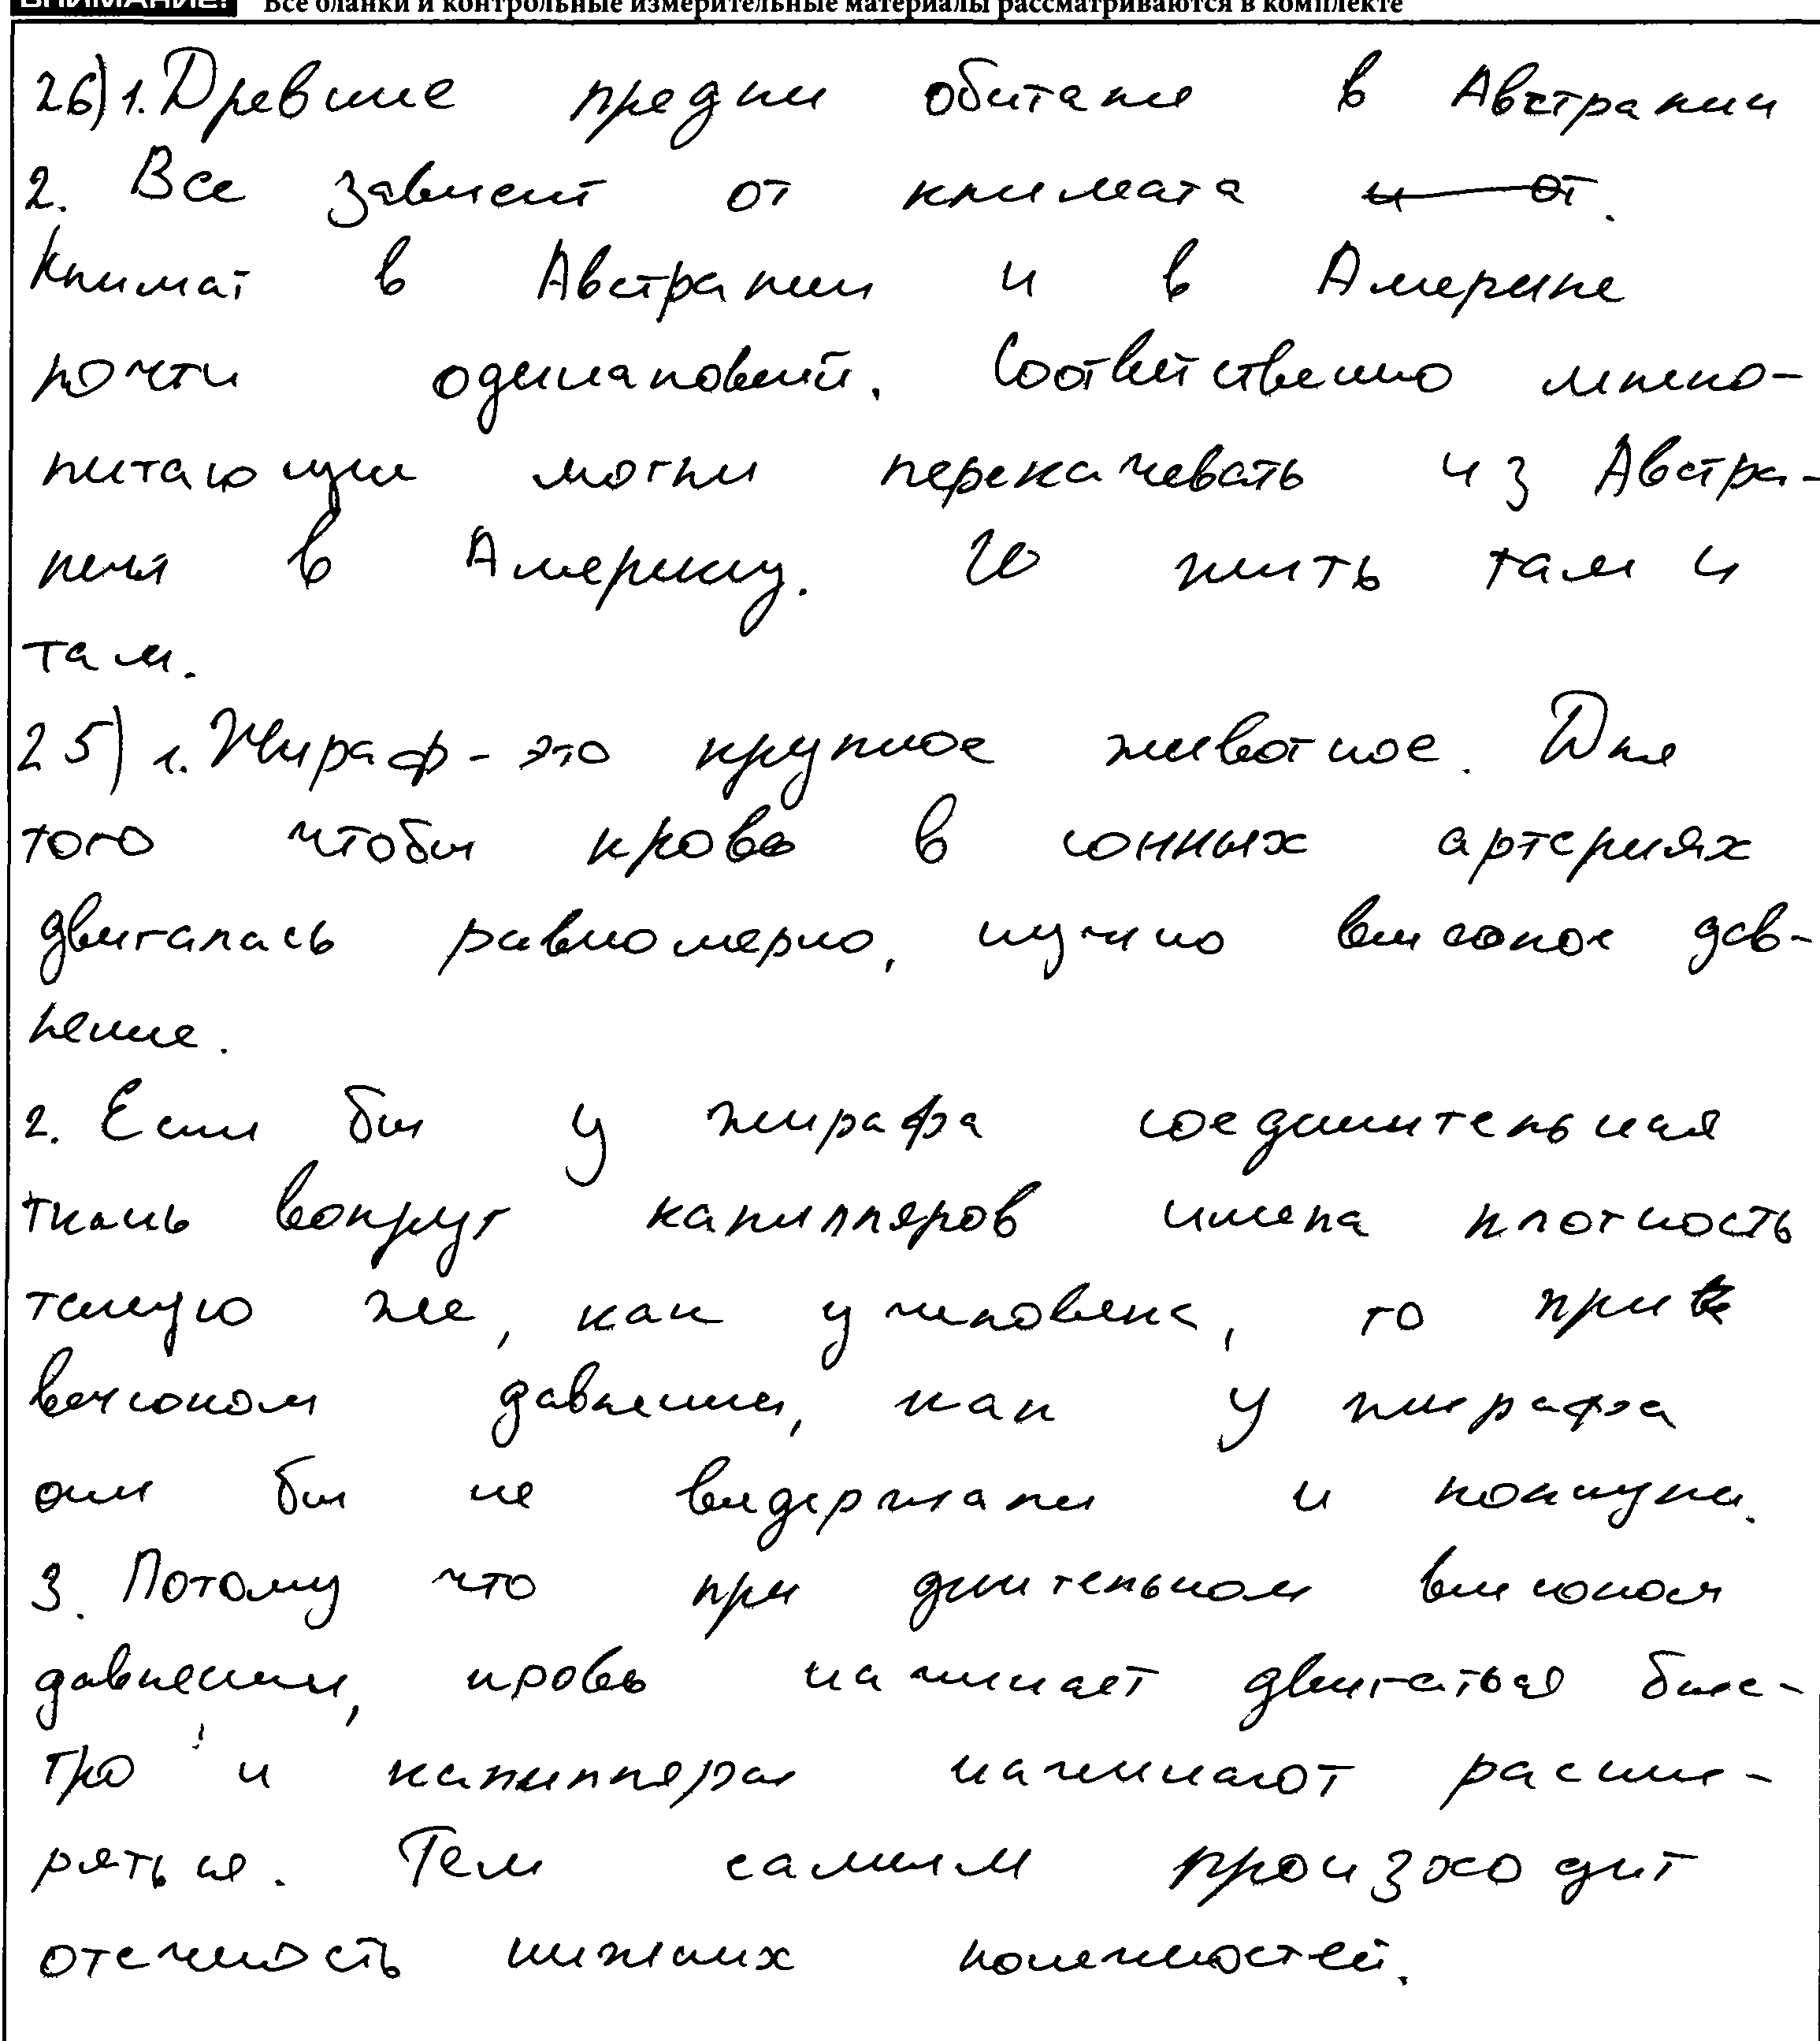 ВНИМАНИЕ! Все бланки и контрольные измерительные материалы рассматриваются в комплекте
26) 1. Древние предки обитали в Австралии
2. Все зависит от климата и от.
Климат в Австралии и в Америке
почти одинаковый. Соответственно млеко-
питающие могли перекачевать из Австра-
лия в Америку. И жить там и
там.
25) 1. Жираф - это крупное животное. Для
того чтобы кровь в сонных артериях
двигалась равномерно, нужно высокое дав-
ление.
2. Если бы у жирафа соединительная
ткань вокруг капилляров имела плотность
такую же, как у человека, то при
высоком давлении, как у жирафа
они бы не выдержали и лопнули.
3. Потому что при длительном высоком
давлении, кровь начинает двигаться быс-
тро и капилляры начинают расши-
ряться. Тем самым произходит
отечность нижних конечностей.